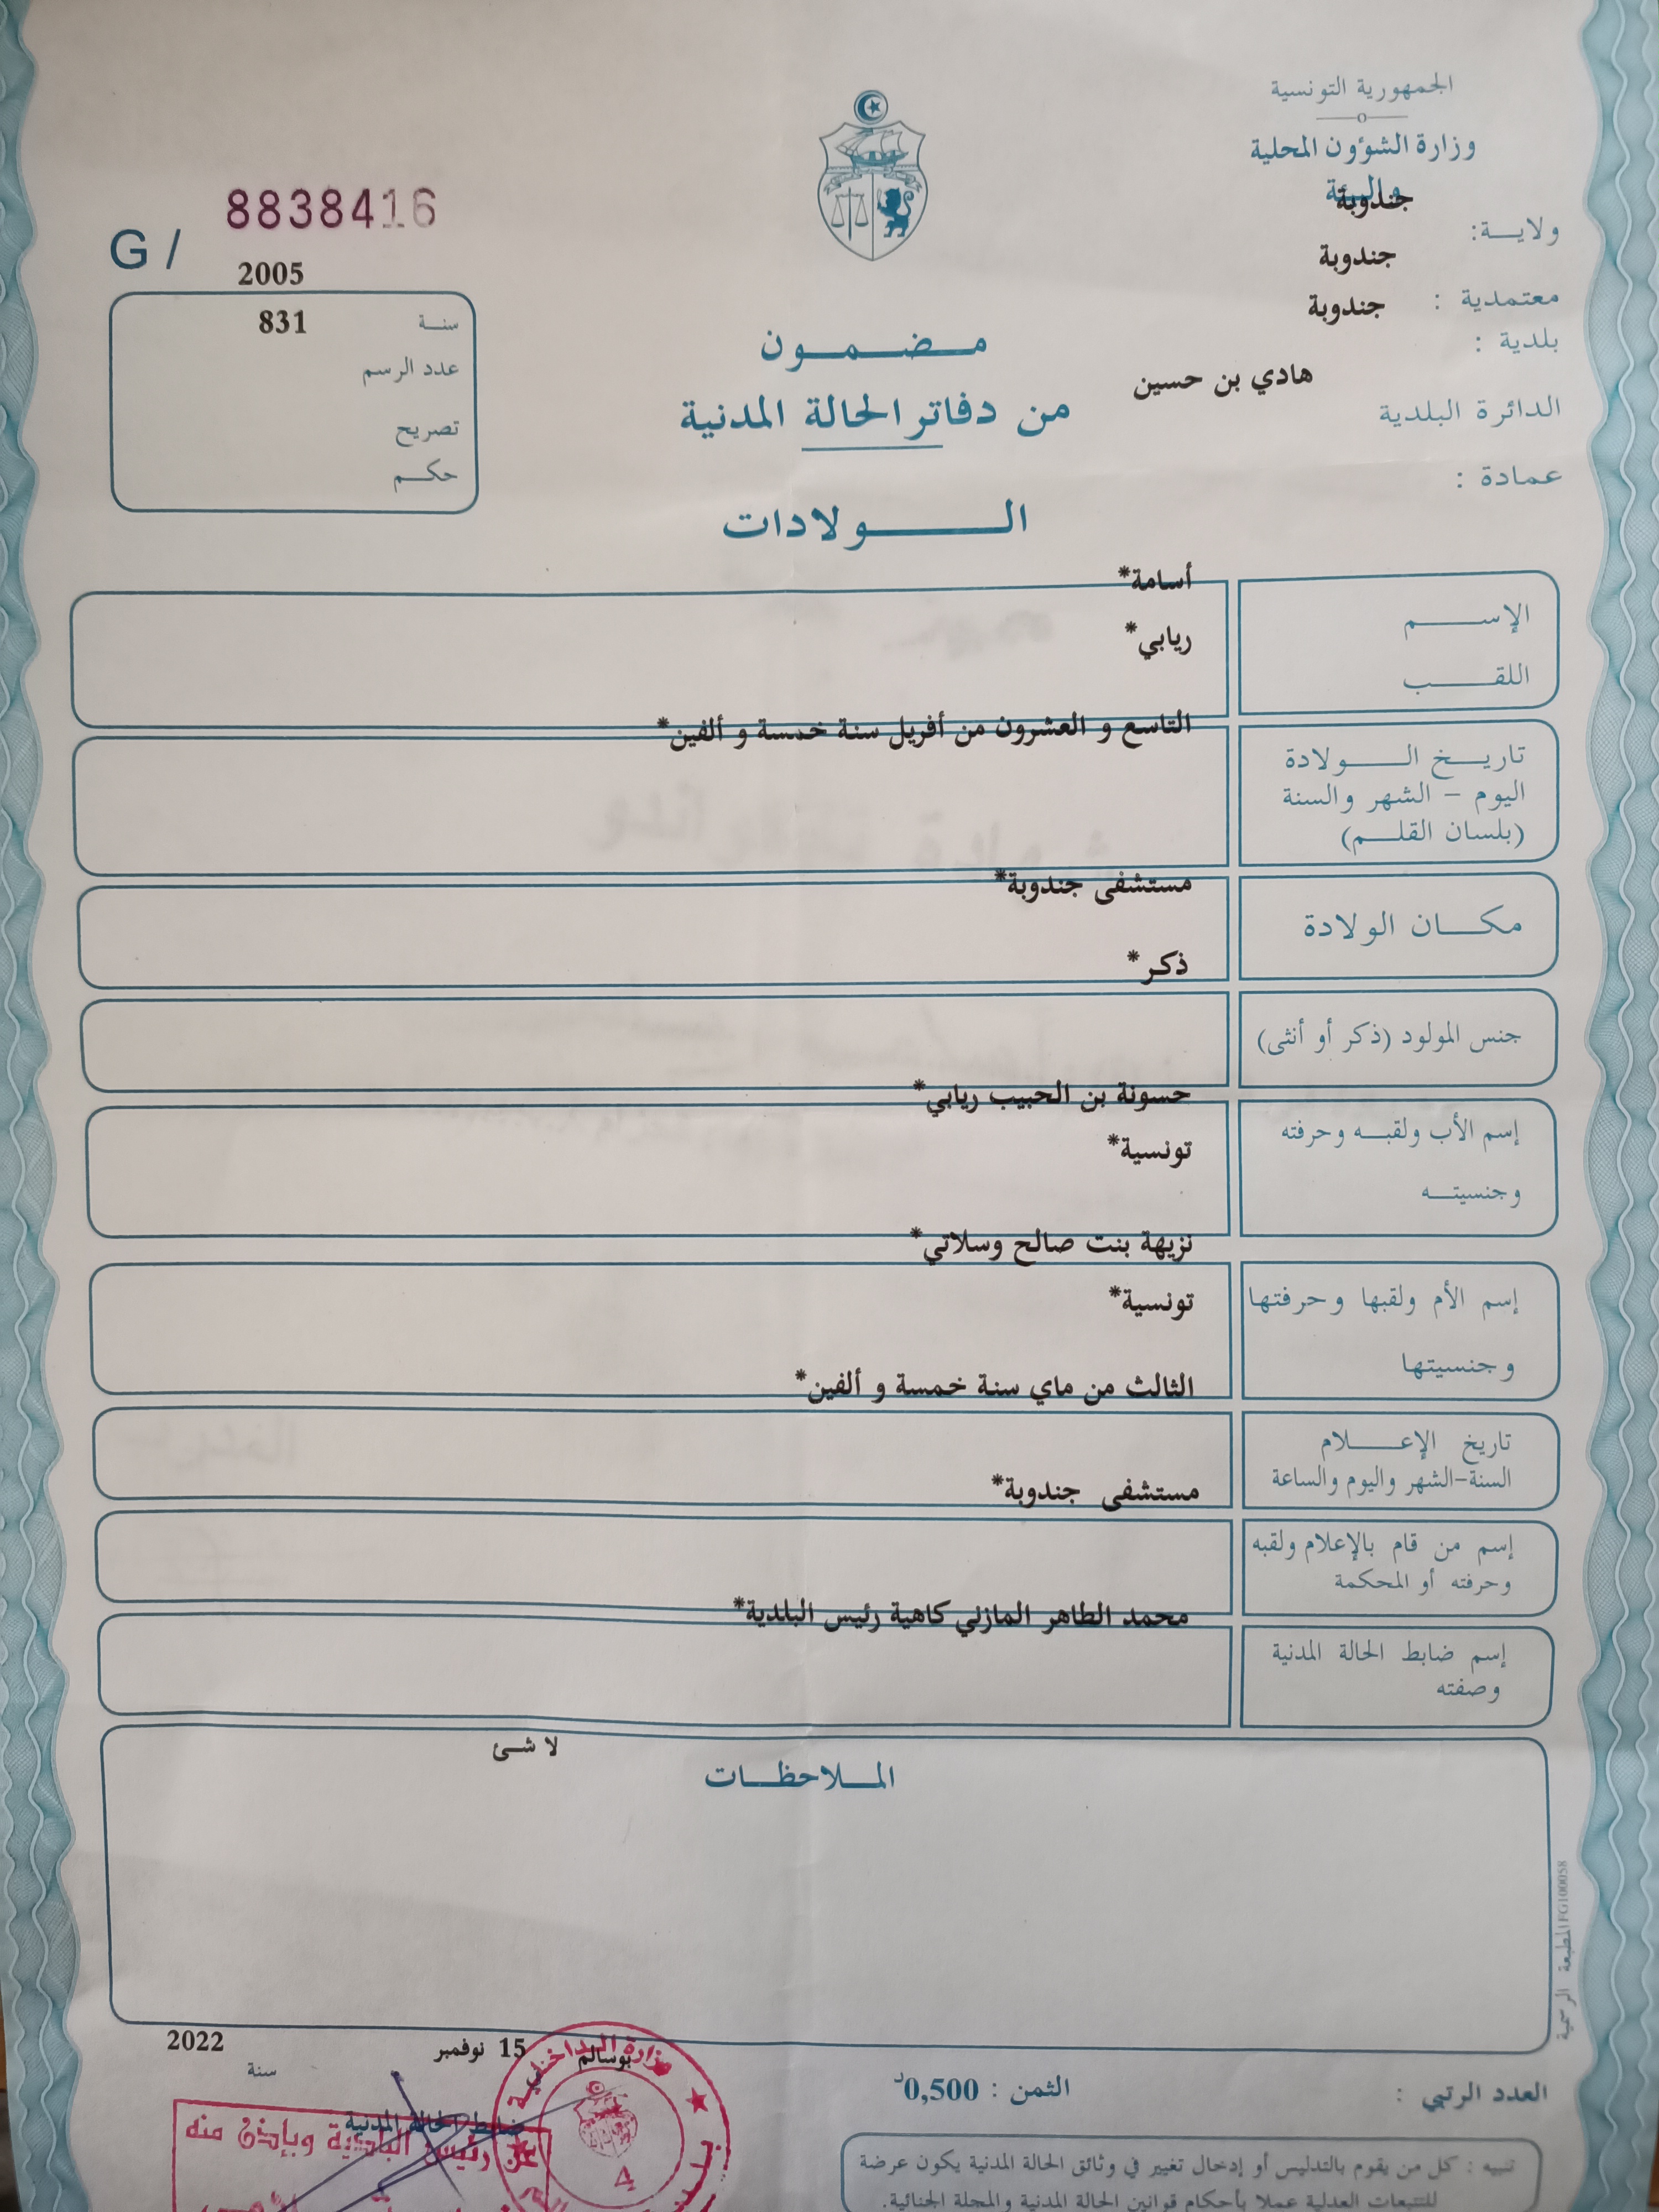 الجمهورية التونسية
وزارة الشؤون المحلية
والبيئة
ولاية: جندوبة
معتمدية : جندوبة
بلدية : جندوبة
الدائرة البلدية هادي بن حسين
عمادة :
G / 8838416
2005
سنة 831
عدد الرسم
تصريح
حكم
مضمون
من دفاتر الحالة المدنية
الولادات
الإسم أسامة*
اللقب ريابي*
التاسع و العشرون من أفريل سنة خمسة و ألفين*
تاريخ الولادة
اليوم - الشهر والسنة
(بلسان القلم)
مستشفى جندوبة*
مكان الولادة
ذكر*
جنس المولود (ذكر أو أنثى)
حسونة بن الحبيب ريابي*
إسم الأب ولقبه وحرفته
تونسية*
وجنسيته
نزيهة بنت صالح وسلاتي*
إسم الأم ولقبها وحرفتها
تونسية*
وجنسيتها
الثالث من ماي سنة خمسة و ألفين*
تاريخ الإعلام
السنة-الشهر واليوم والساعة
مستشفى جندوبة*
إسم من قام بالإعلام ولقبه
وحرفته أو المحكمة
محمد الطاهر المازلي كاهية رئيس البلدية*
إسم ضابط الحالة المدنية
وصفته
لا شئ
الملاحظات
المطبعة الرسمية FG100058
بوسالم 15 نوفمبر 2022
سنة
ضابط الحالة المدنية
وزارة الداخلية
4
عن رئيس البلدية وبإذن منه
العدد الرتبي :
الثمن : 0,500د
تنبيه : كل من يقوم بالتدليس أو إدخال تغيير في وثائق الحالة المدنية يكون عرضة
للتتبعات العدلية عملا بأحكام قوانين الحالة المدنية والمجلة الجنائية.